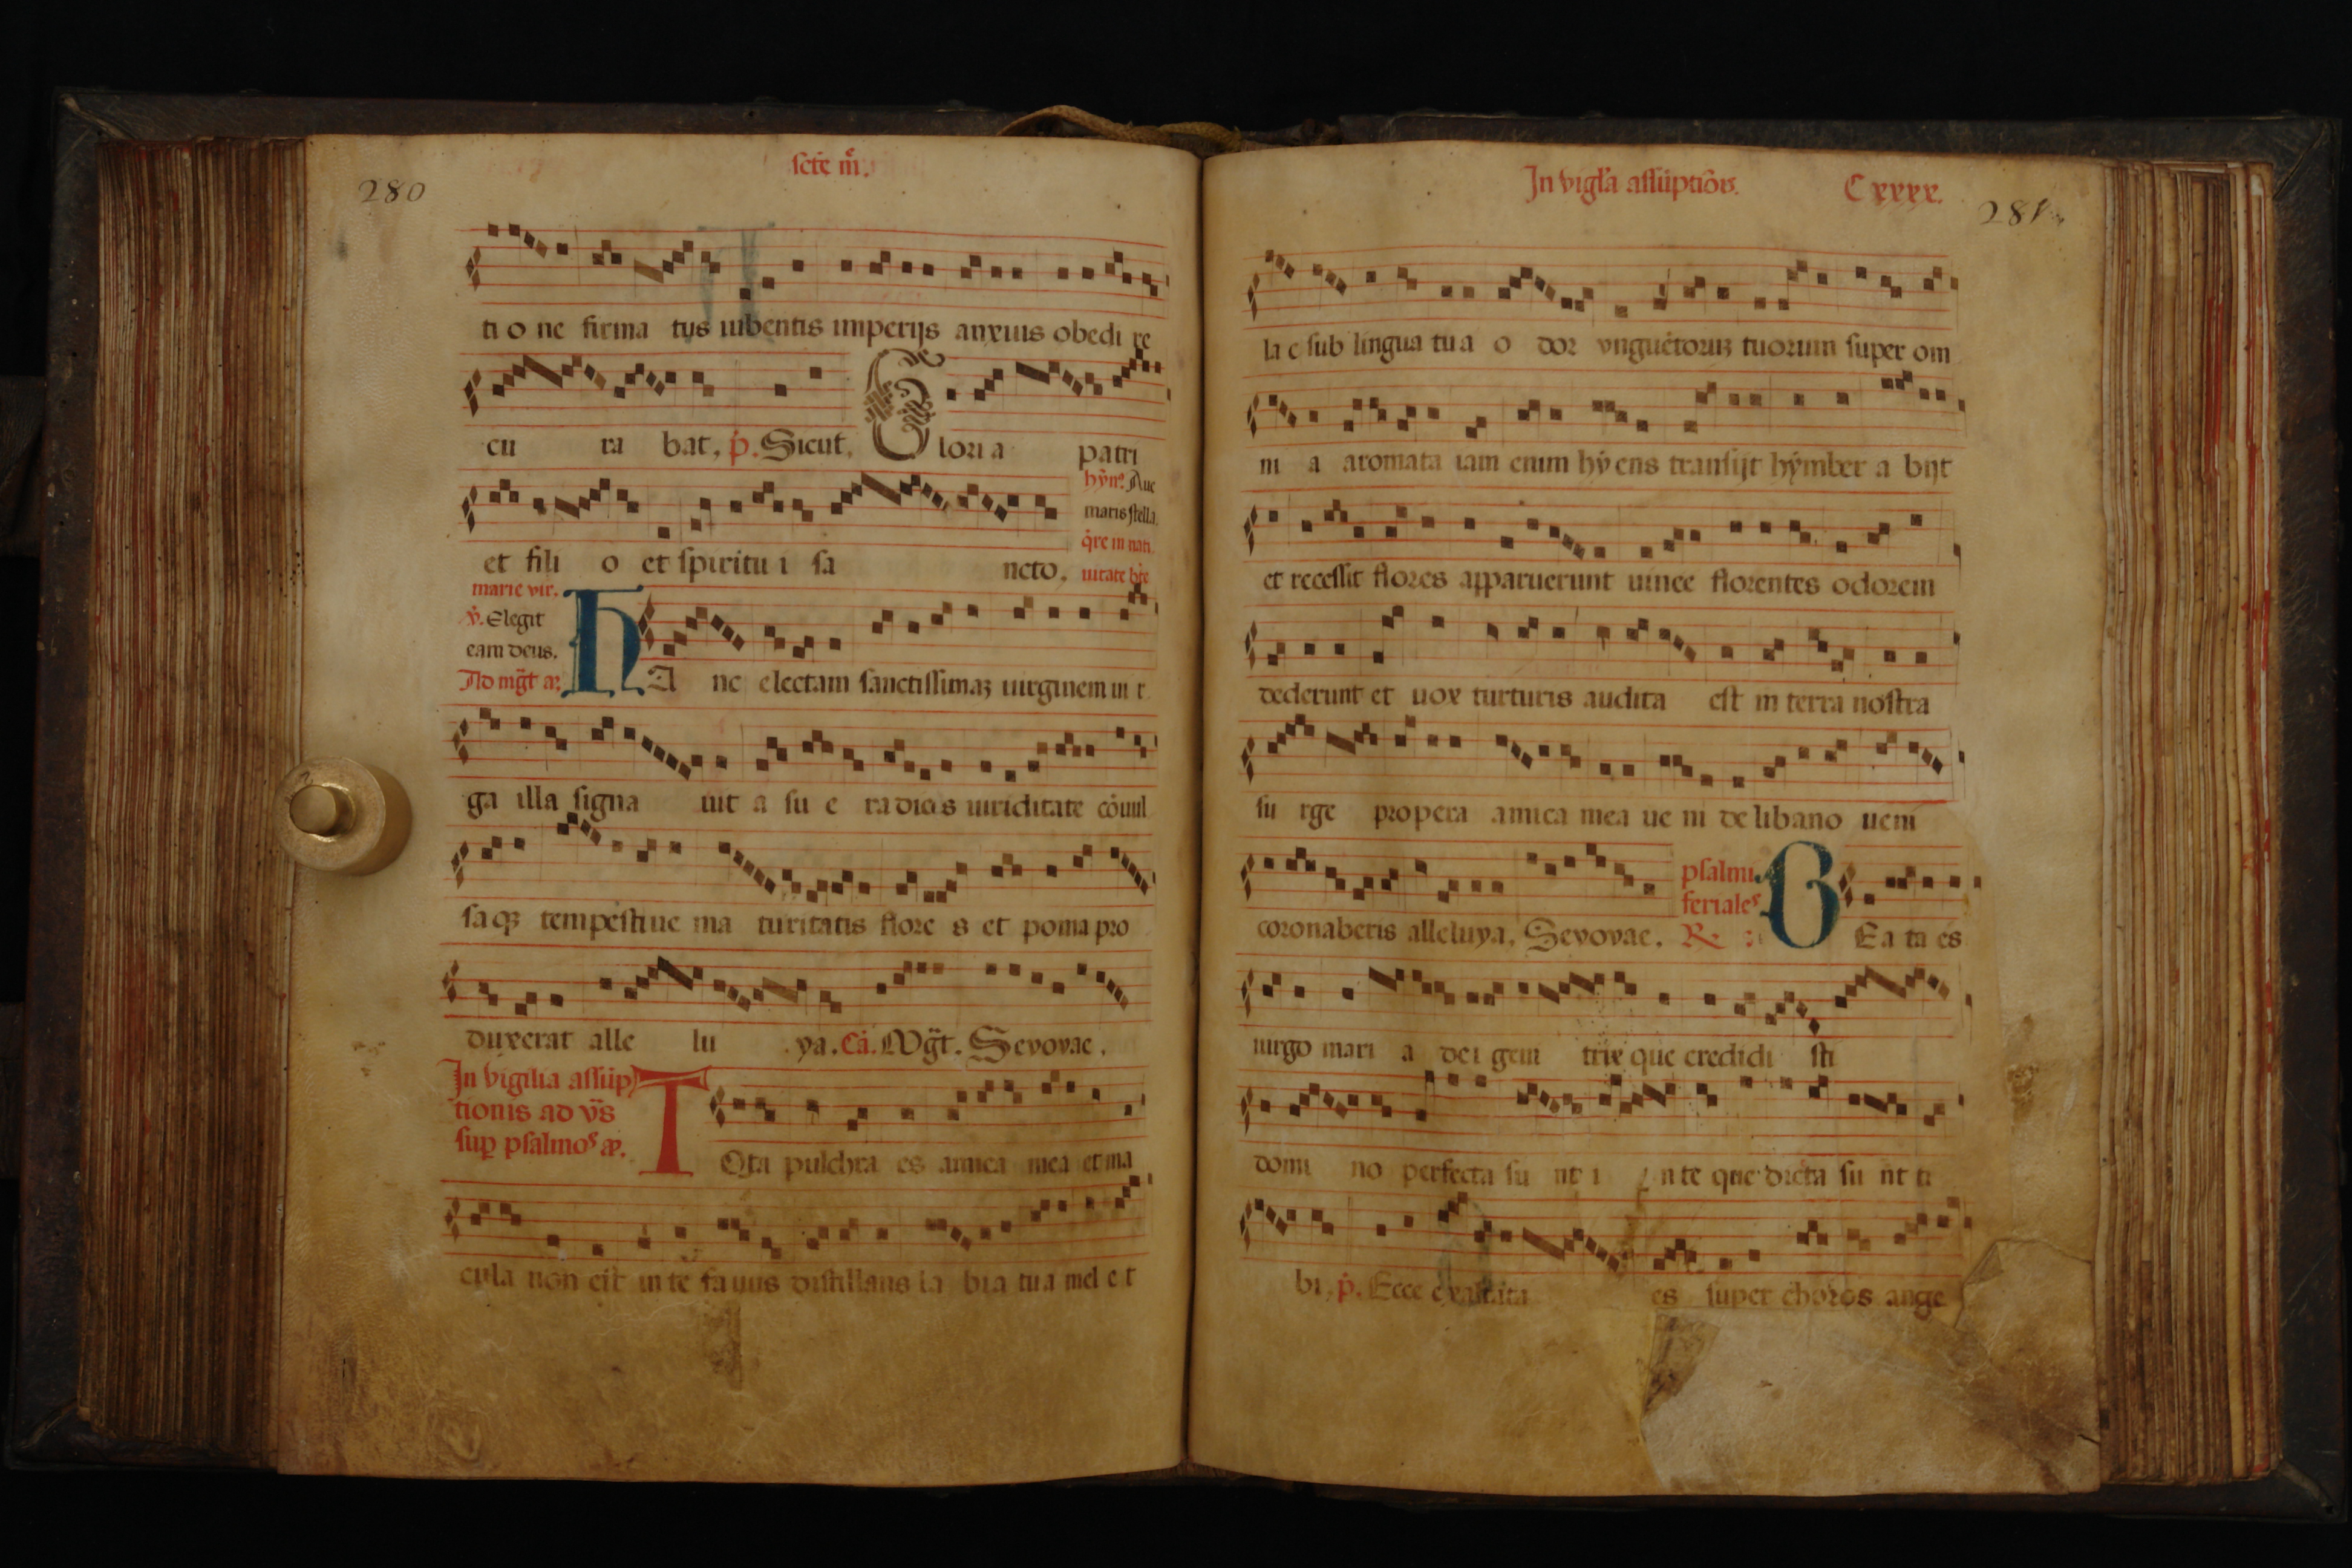 280
scte m̃.
ti o ne firma tus iubentis imperijs anxius obedi re
cu ra bat, p̃. Sicut, Glori a patri
hỹn⁹. Aue
maris stella.
q̃re in nati
et fili o et spiritu i sa ncto, uitate bt̃e
marie vir.
ṽ. Elegit
eam deus.
Ad mg̃t añ. HA nc electam sanctissimaʒ uirginem ui r
ga illa signa uit a su e radicis uiriditate cõuul
saqʒ tempestiue ma turitatis flore s et poma pro
duxerat alle lu ya. Cã. Mg̃t. Seuouae.
In vigilia assũp
tionis ad vs̃
sup psalmos añ. TOta pulchra es amica mea et ma
cula non est in te fauus distillans la bia tua mel e t
In vigl'a assũptiõis. Cxxxx.
281
la c sub lingua tu a o dor vnguẽtoruʒ tuorum super om
ni a aromata iam enim hyens transijt hymber a bijt
et recessit flores apparuerunt uinee florentes odorem
dederunt et uox turturis audita est in terra nostra
su rge propera amica mea ue ni de libano ueni
psalmi
feriales
coronaberis alleluya, Seuouae. R̃: BEa ta es
uirgo mari a dei geni trix que credidi sti
domi no perfecta su nt i n te que dicta su nt ti
bi, p̃. Ecce exaltata es super choros ange